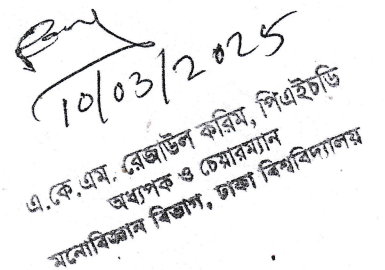 10/03/2025
এ.কে.এম. রেজাউল করিম, পিএইচডি
অধ্যাপক ও চেয়ারম্যান
মনোবিজ্ঞান বিভাগ, ঢাকা বিশ্ববিদ্যালয়